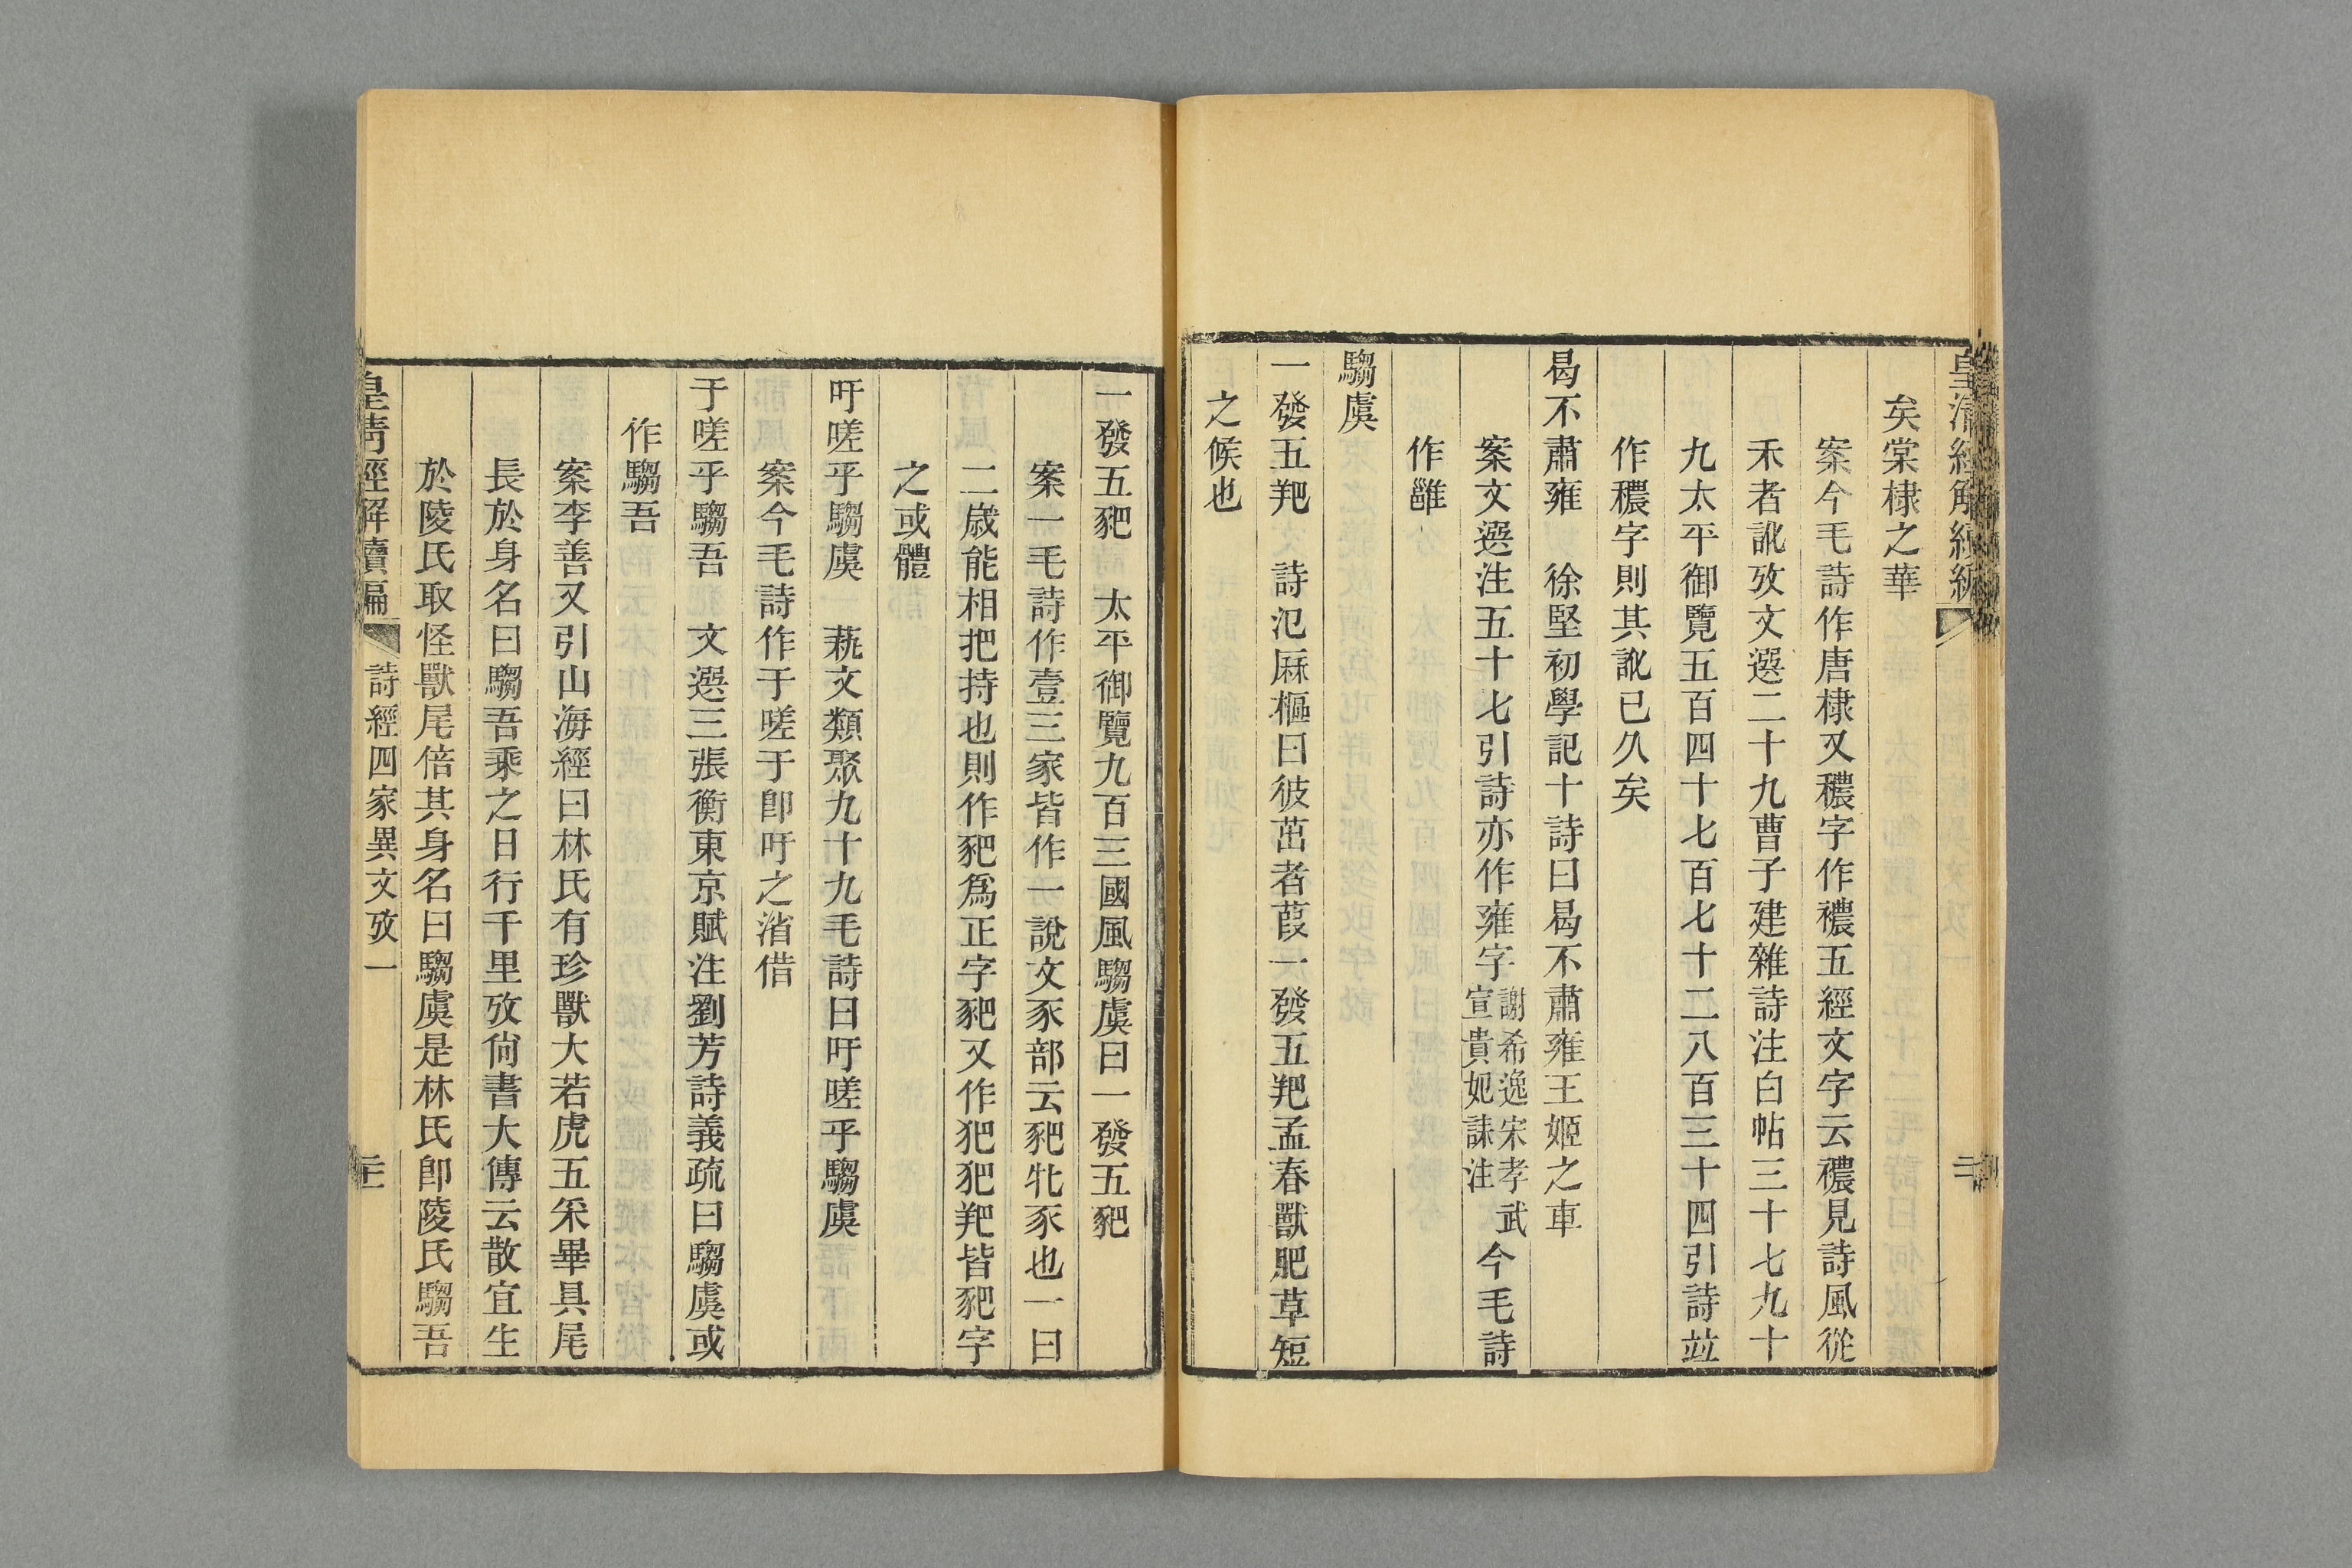 皇清經解續編
矣棠棣之華
案今毛詩作唐棣又穠字作襛五經文字云襛見詩風從
禾者訛攷文選二十九曹子建雜詩注白帖三十七九十
九太平御覽五百四十七百七十二八百三十四引詩竝
作穠字則其訛已久矣
曷不肅雍　徐堅初學記十詩曰曷不肅雍王姬之車
案文選注五十七引詩亦作雍字謝希逸宋孝武宣貴妃誄注今毛詩
作雝
騶虞
一發五豝　詩氾厤樞曰彼茁者葭一發五豝孟春獸肥草短
之候也
一發五豝　太平御覽九百三國風騶虞曰一發五豝
案一毛詩作壹三家皆作一說文豕部云豝牝豕也一曰
二歲能相把持也則作豝爲正字豝又作犯犯䎱皆豝字
之或體
吁嗟乎騶虞　蓺文類聚九十九毛詩曰吁嗟乎騶虞
案今毛詩作于嗟于卽吁之渻借
于嗟乎騶吾　文選三張衡東京賦注劉芳詩義疏曰騶虞或
作騶吾
案李善又引山海經曰林氏有珍獸大若虎五采畢具尾
長於身名曰騶吾乘之日行千里攷尙書大傳云散宜生
於陵氏取怪獸尾倍其身名曰騶虞是林氏卽陵氏騶吾
皇清經解續編　詩經四家異文攷一